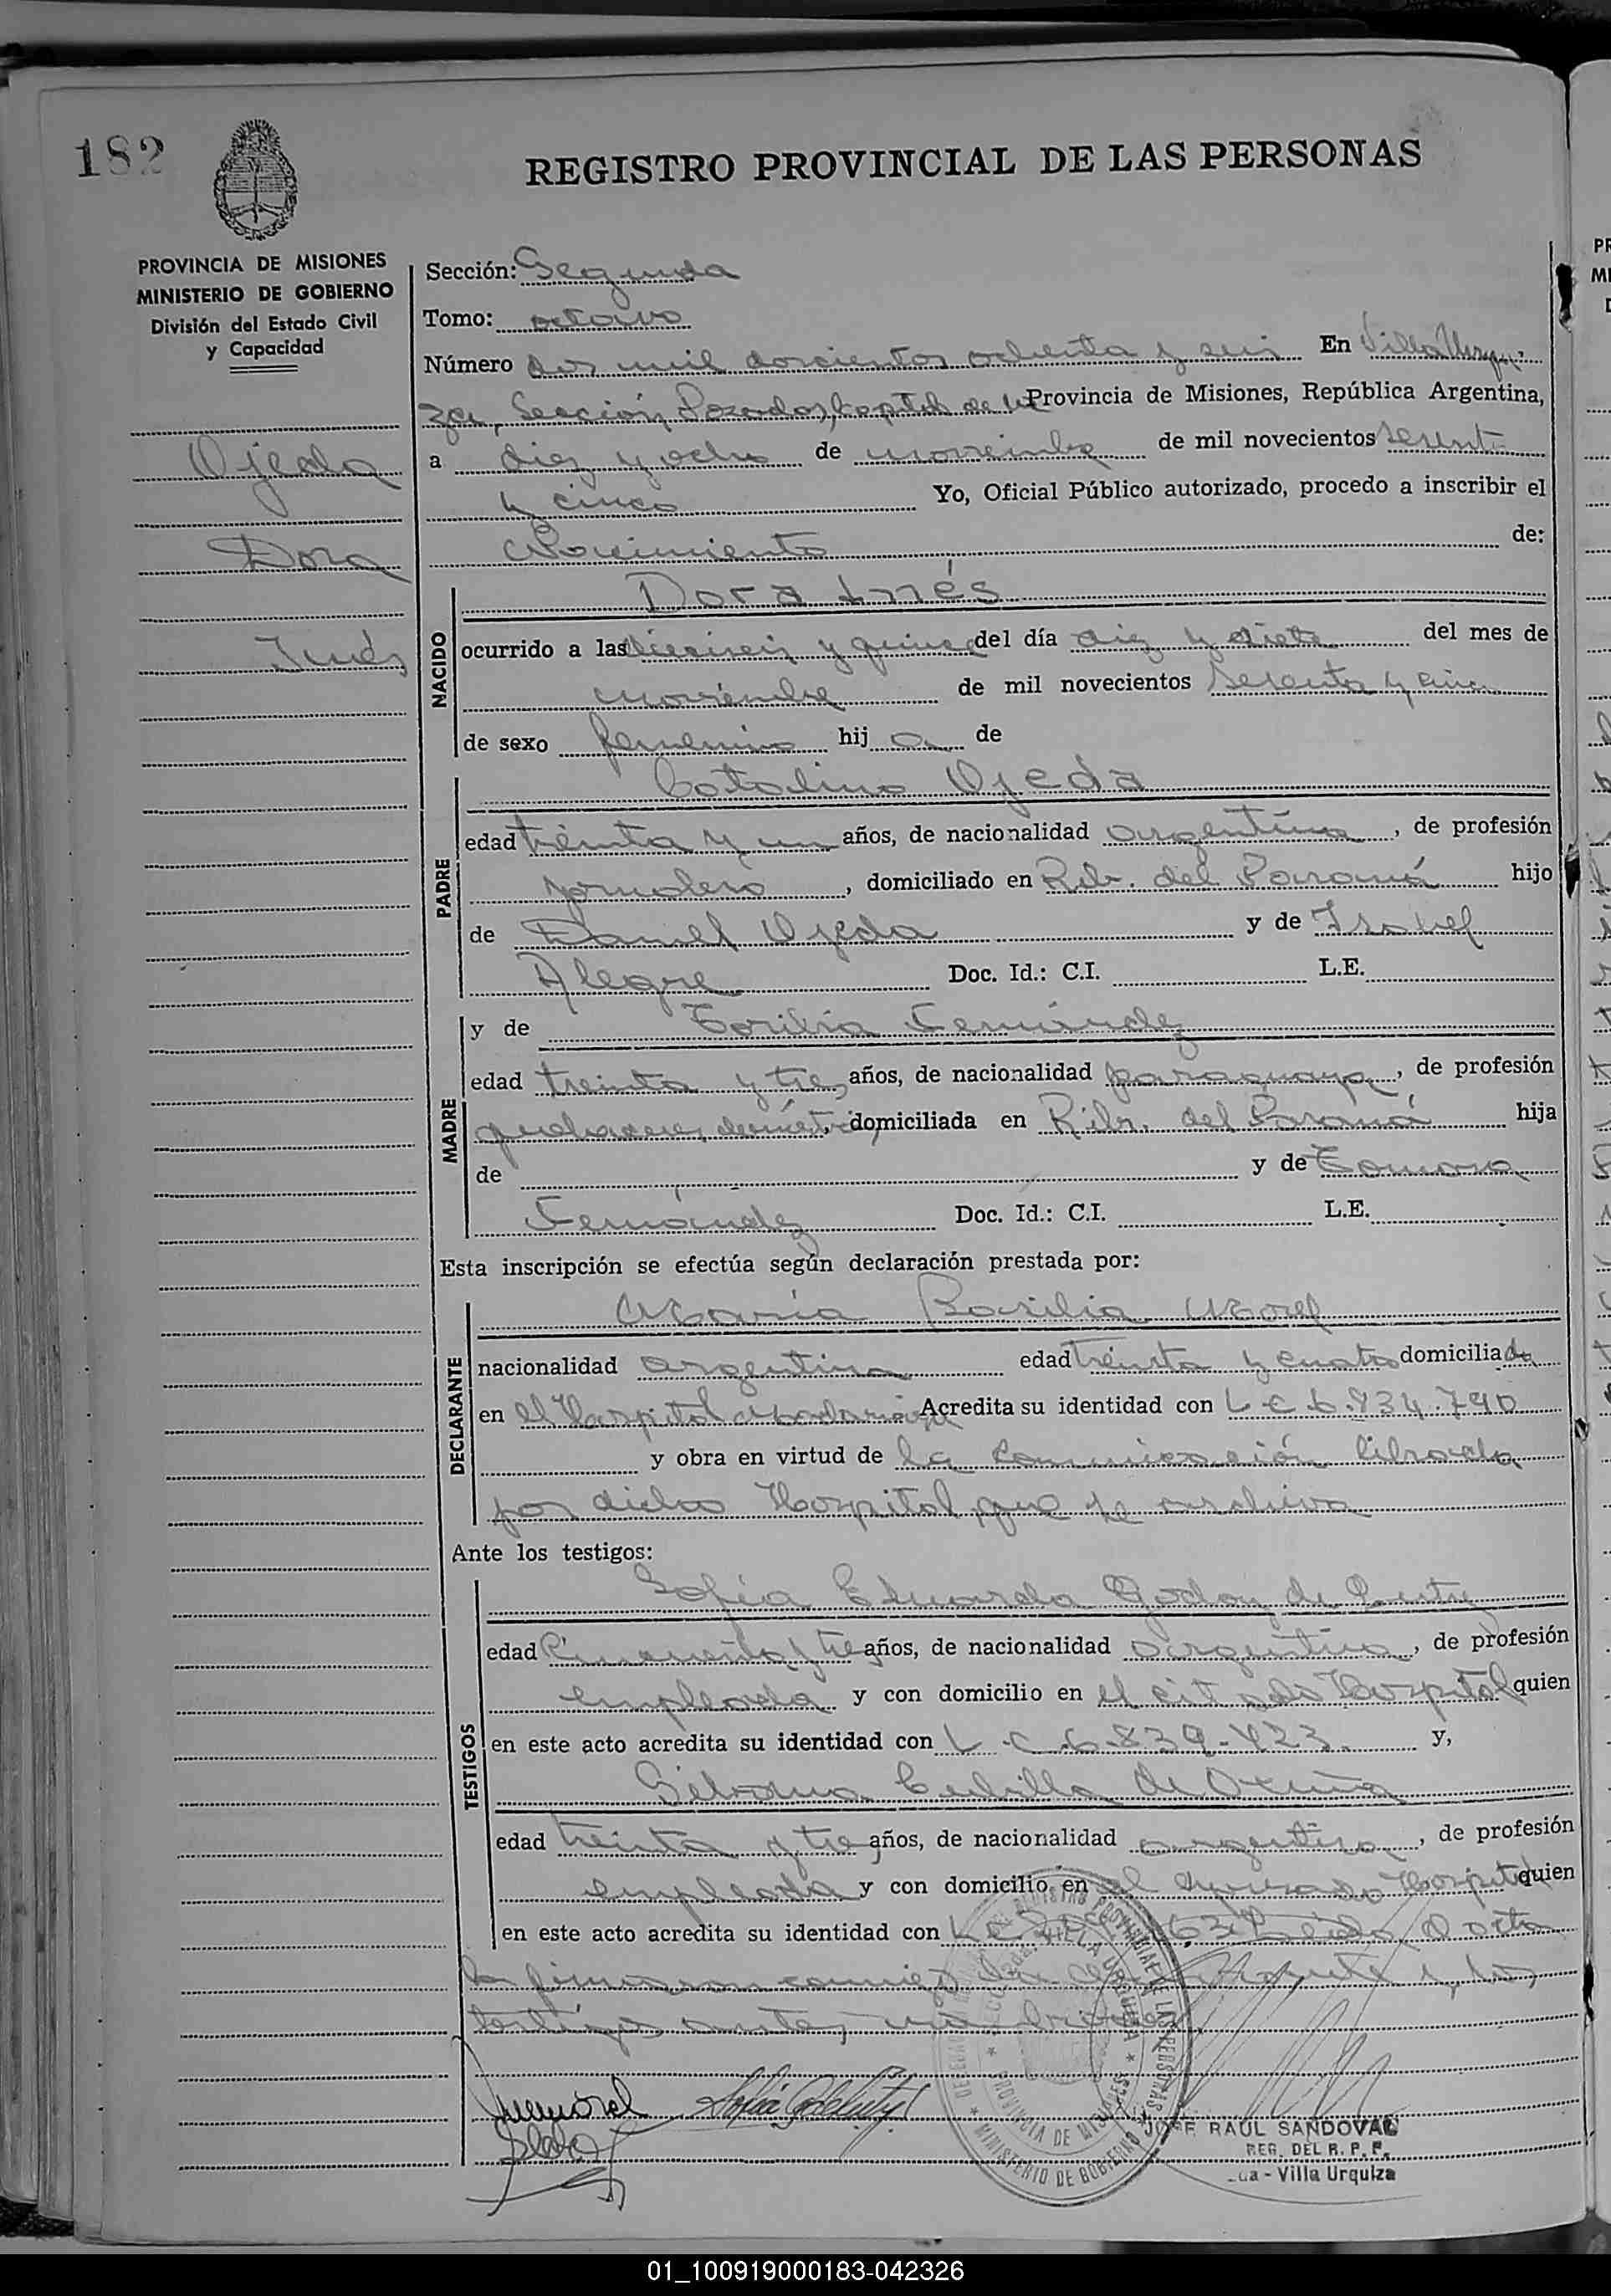 182
REGISTRO PROVINCIAL DE LAS PERSONAS
PROVINCIA DE MISIONES
MINISTERIO DE GOBIERNO
División del Estado Civil
y Capacidad
Ojeda
Dora
Inés
Sección: Segunda
Tomo: octavo
Número dos mil doscientos ochenta y seis En Villa Urqui
za, Sección Posadas, Capital de la Provincia de Misiones, República Argentina,
a diez y ocho de noviembre de mil novecientos sesenta
y cinco Yo, Oficial Público autorizado, procedo a inscribir el
Nacimiento de:
NACIDO
Dora Inés
ocurrido a las dieciseis y quince del día diez y siete del mes de
noviembre de mil novecientos sesenta y cinco
de sexo femenino hij a de
PADRE
Catalino Ojeda
edad treinta y un años, de nacionalidad argentina, de profesión
jornalero, domiciliado en Rib. del Paraná hijo
de Daniel Ojeda y de Isabel
Alegre Doc. Id.: C.I. L.E.
MADRE
y de Toribia Fernández
edad treinta y tres años, de nacionalidad paraguaya, de profesión
quehaceres domésticos, domiciliada en Rib. del Paraná hija
de y de Tomasa
Fernández Doc. Id.: C.I. L.E.
Esta inscripción se efectúa según declaración prestada por:
DECLARANTE
María Basilia Morel
nacionalidad argentina edad treinta y cuatro domiciliada
en el Hospital Madariaga Acredita su identidad con L C 6.834.790
y obra en virtud de la comunicación librada
por dicho Hospital que se archiva
Ante los testigos:
TESTIGOS
Sofía Eduarda Godoy de
edad cincuenta y tres años, de nacionalidad argentina, de profesión
empleada y con domicilio en el citado Hospital quien
en este acto acredita su identidad con L C 6.839.423 y,
de
edad treinta y tres años, de nacionalidad argentina, de profesión
empleada y con domicilio en el Hospital quien
en este acto acredita su identidad con L C Leída el acta
la firman conmigo y los
testigos antes
REGISTRO PROVINCIAL DE LAS PERSONAS
VILLA URQUIZA
PROVINCIA DE MISIONES
MINISTERIO DE GOBIERNO
JOSE RAUL SANDOVAL
REG. DEL R. P. P.
- Villa Urquiza
01_100919000183-042326